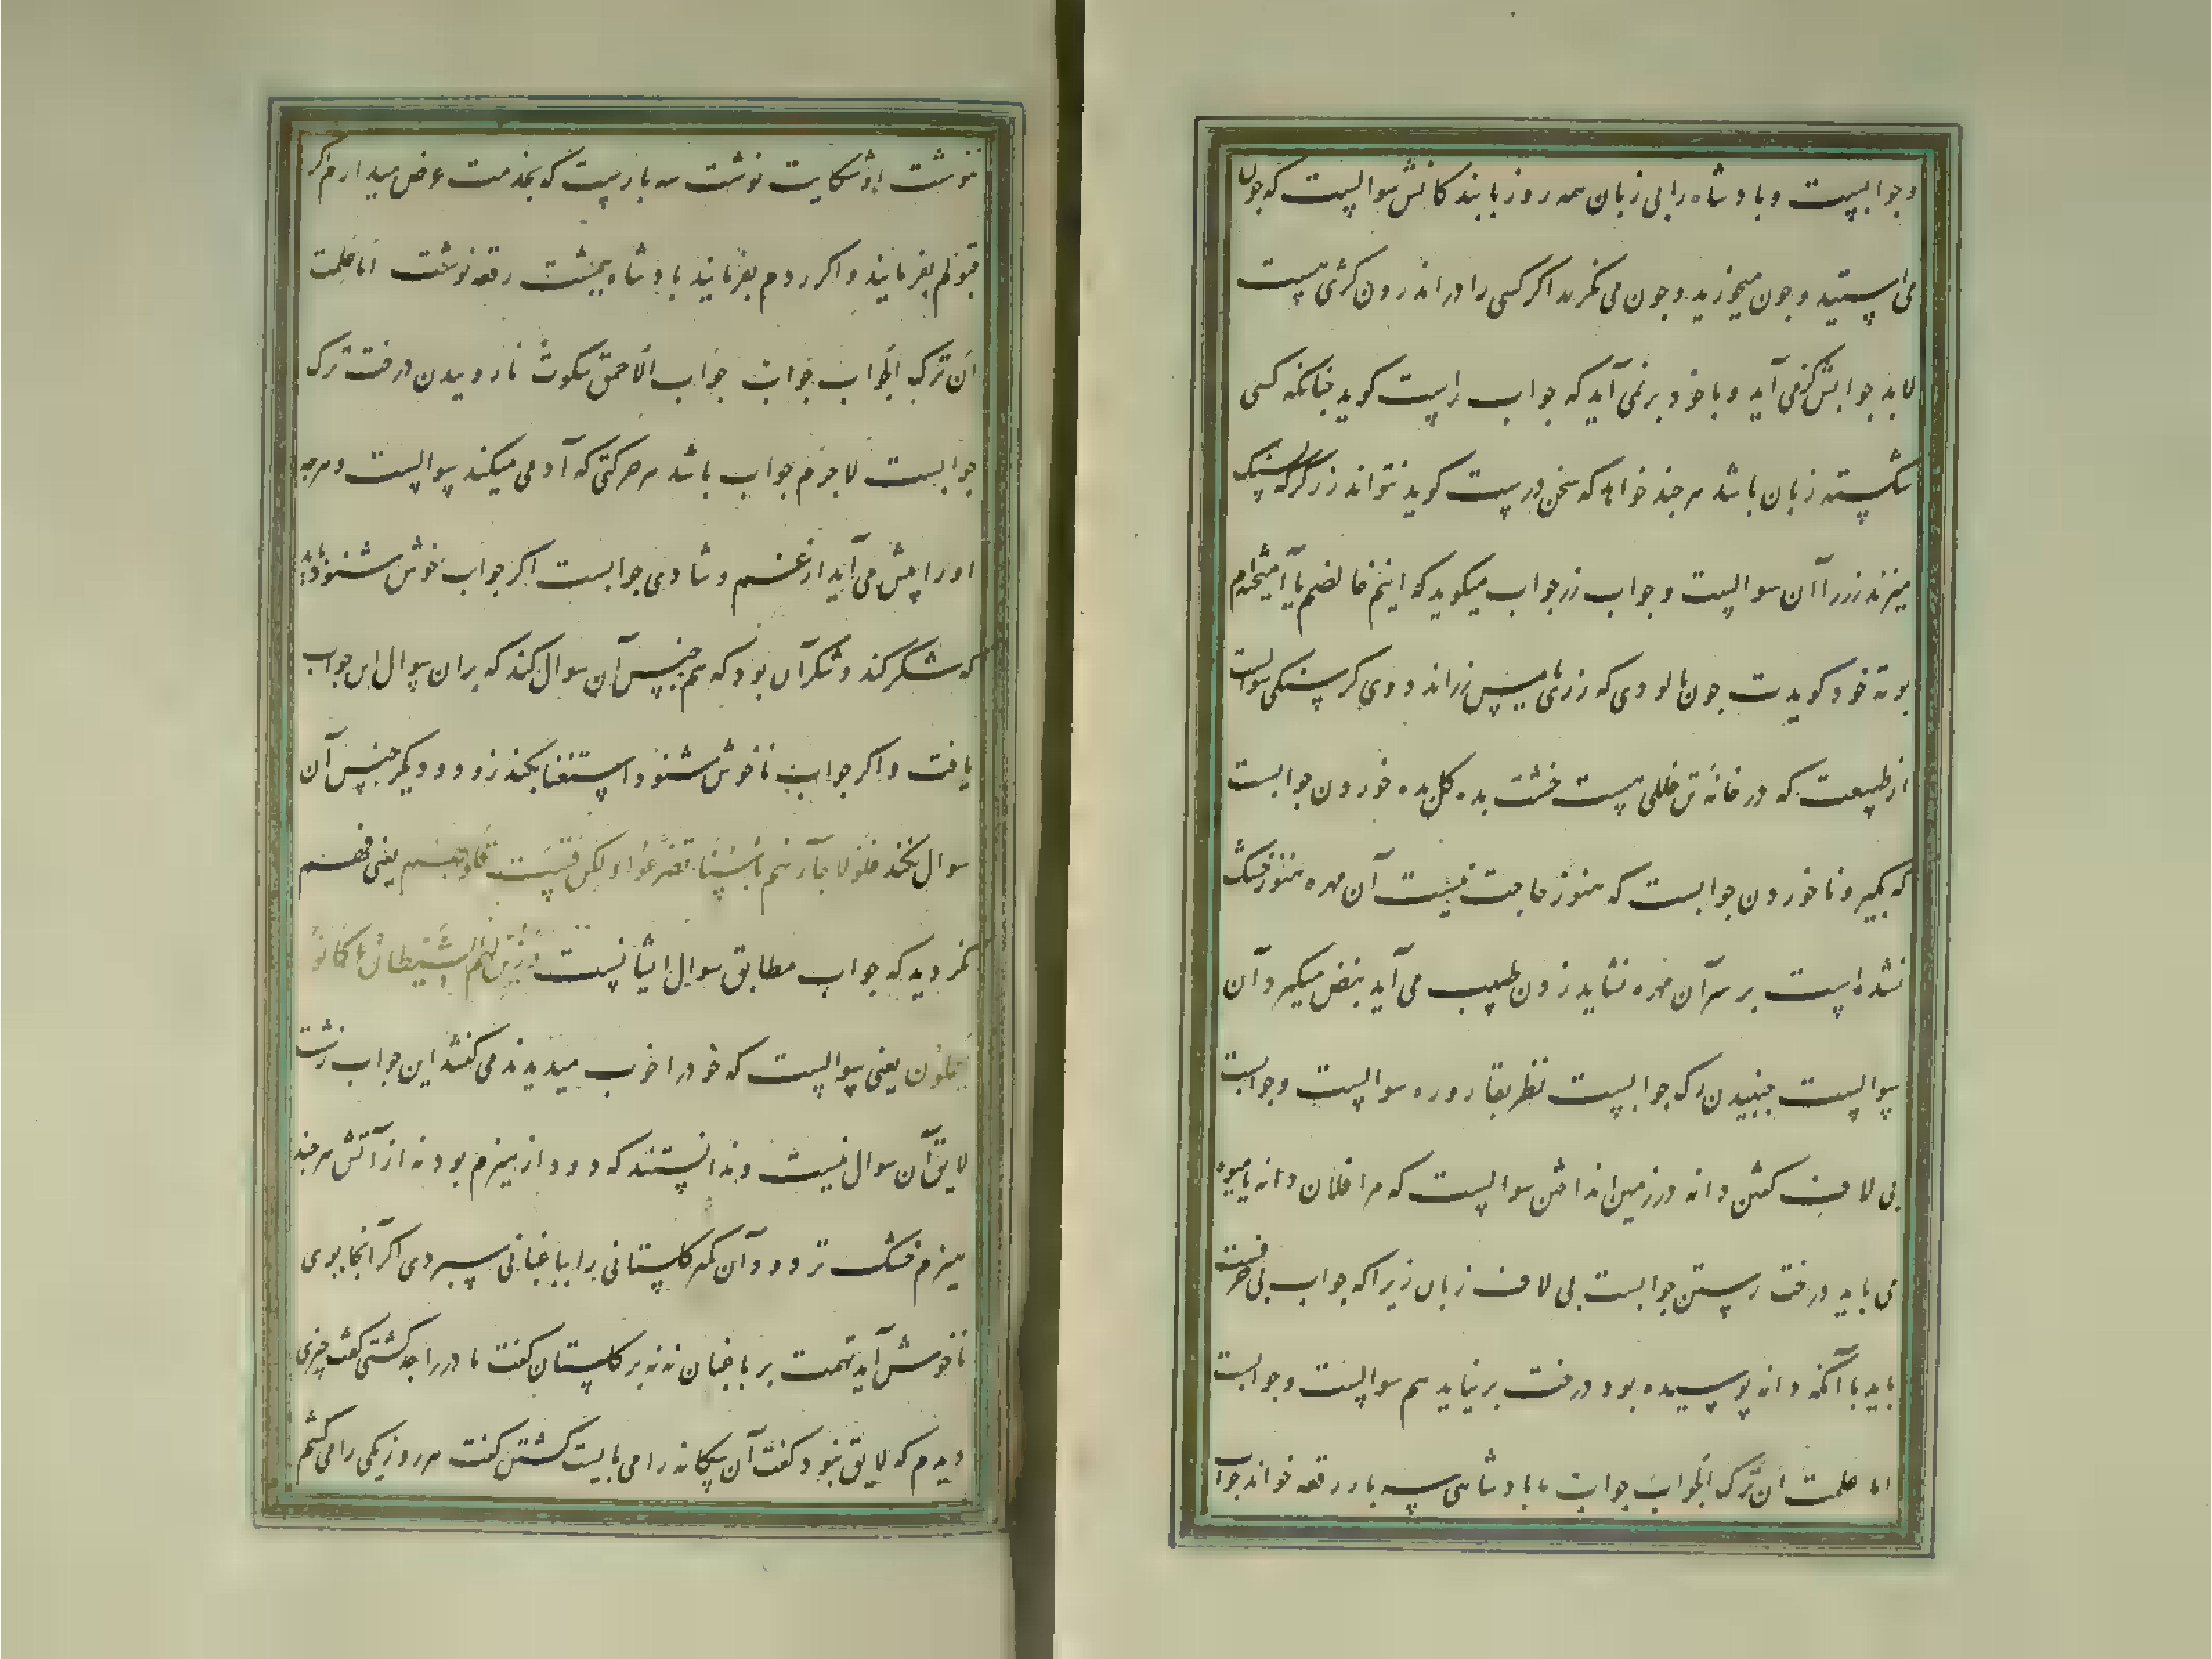 و جوابیست و پادشاه را بی زبان همه روز با بندکانش سوالیست که چون
می ایستید و چون میخورید و چون می نکرید اکر کسی را در اندرون کژی هست
لابد جوابش کژ می آید و با خود بر نمی آید که جواب راست کوید چنانکه کسی
شکسته زبان باشد هر چند خواهد که سخن درست کوید نتواند زرکر که سنک
میزند زر را آن سوالیست و جواب زر جواب میکوید که اینم خالصم یا آمیخته‌ام
بوته خود کویدت چون پالودی که زری یا مس زراندودی کرسنکی سوالست
از طبیعت که در خانهٔ تن خللی هست خشت بده کل بده خوردن جوابست
که بکیر و ناخوردن جوابست که هنوز حاجت نیست آن مهره هنوز خشک
نشده است بر سر آن مهره نشاید زدن طبیب می آید نبض میکیرد آن
سوالیست جنبیدن رک جوابیست نظر بقاروره سوالیست و جوابست
بی لاف کشتن دانه در زمین انداختن سوالیست که مرا فلان دانه یا میوه
می باید درخت رستن جوابست بی لاف زبان زیرا که جواب بی حرفست
باید با آنکه دانه پوسیده بود درخت بر نیاید هم سوالیست و جوابست
اما علمت ان ترک الجواب جواب پادشاهی سه بار رقعه خواند جواب
ننوشت او شکایت نوشت سه بارست که بخدمت عرض میدارم اکر
قبولم بفرمایند و اکر ردم بفرمایند پادشاه بپشت رقعه نوشت اما علمت
ان ترک الجواب جواب جواب الاحمق سکوت ناروییدن درخت ترک
جوابست لاجرم جواب باشد هر حرکتی که آدمی میکند سوالیست و هرچه
او را پیش می آید از غم و شادی جوابست اکر جواب خوش شنود باید
که شکر کند و شکر آن بود که هم جنس آن سوال کند که بر آن سوال این جواب
یافت و اکر جواب ناخوش شنود استغفا بکند زود و دیکر جنس آن
سوال نکند فلولا جآءهم باسنا تضرعوا ولکن قست قلوبهم یعنی فهم
نکردید که جواب مطابق سوال ایشانست و زین لهم الشیطان ما کانوا
یعملون یعنی سوالیست که خود را خوب میدیدند می کفتند این جواب زشت
لایق آن سوال نیست و ندانستند که دود از هیزم بود نه از آتش هر چند
هیزم خشک تر دود آن کمتر کلستانی را بباغبانی سپردی اکر آنجا بوی
ناخوش آید تهمت بر باغبان نه نه بر کلستان کفت مادر را چه کشتی کفت چیزی
دیدم که لایق نبود کفت آن بیکانه را می بایست کشتن کفت هر روز یکی را می کشم